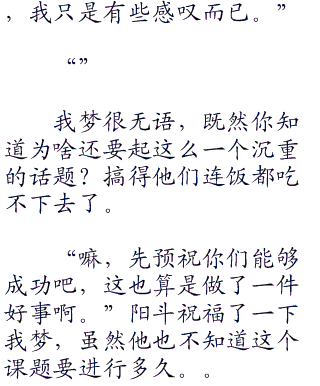 ，我只是有些感叹而已。”
“”
我梦很无语，既然你知
道为啥还要起这么一个沉重
的话题？搞得他们连饭都吃
不下去了。
“嘛，先预祝你们能够
成功吧，这也算是做了一件
好事啊。”阳斗祝福了一下
我梦，虽然他也不知道这个
课题要进行多久。。